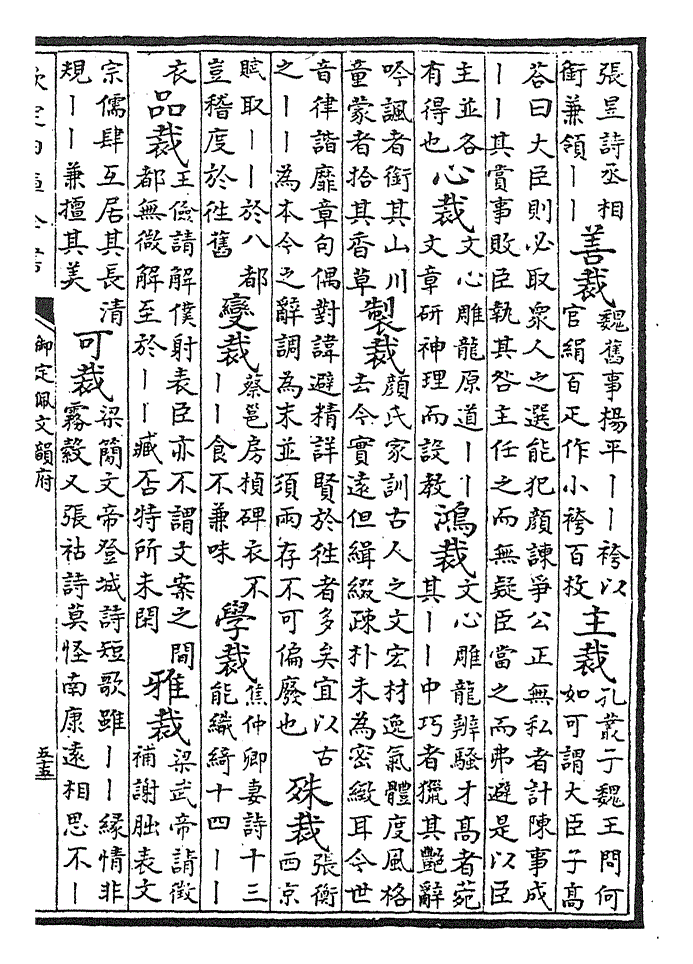 張昱詩丞相
衘兼領丨丨
善裁
魏舊事楊平丨丨袴以
官絹百疋作小袴百枚
主裁
孔叢子魏王問何
如可謂大臣子高
荅曰大臣則必取衆人之選能犯顔諫爭公正無私者計陳事成
丨丨其賞事敗臣執其咎主任之而無疑臣當之而弗避是以臣
主並各
有得也
心裁
文心雕龍原道丨丨
文章研神理而設教
鴻裁
文心雕龍辨騷才髙者菀
其丨丨中巧者獵其艷辭
吟諷者銜其山川
童蒙者拾其香草
製裁
顔氏家訓古人之文宏材逸氣體度風格
去今實遠但緝綴疎朴未為密緻耳今世
音律諧靡章句偶對諱避精詳賢於徃者多矣宜以古
之丨丨為本今之辭調為末並須兩存不可偏廢也
殊裁
張衡
西京
賦取丨丨於八都
豈稽度於徃舊
變裁
蔡邕房楨碑衣不
丨丨食不兼味
學裁
焦仲卿妻詩十三
能織綺十四丨丨
衣
品裁
王儉請解僕射表臣亦不謂文案之間
都無微解至於丨丨臧否特所未閑
雅裁
梁武帝請徵
補謝朏表文
宗儒肆互居其長清
規丨丨兼擅其美
可裁
梁簡文帝登城詩短歌雖丨丨緣情非
霧縠又張祜詩莫怪南康遠相思不丨
欽定四庫全書
御定佩文韻府